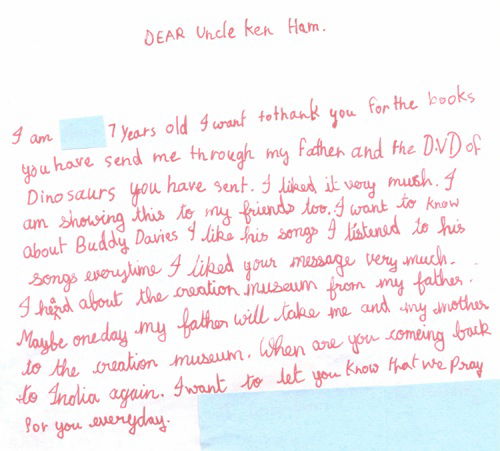 DEAR Uncle Ken Ham.
I am 7 years old I want to thank you for the books
you have send me through my father and the DVD of
Dinosaurs you have sent. I liked it very mush. I
am showing this to my friends too. I want to know
about Buddy Davies I like his songs I listened to his
songs everytime I liked your message very much.
I heard about the creation museum from my father.
Maybe oneday my father will take me and my mother
to the creation museum. When are you comeing back
to India again. I want to let you know that we Pray
for you everyday.